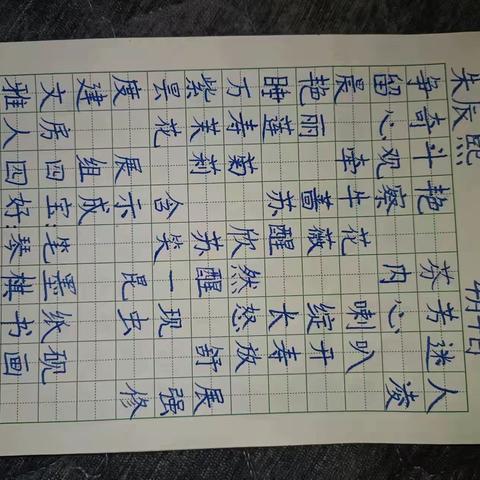 朱辰熙
争奇斗艳 芬芳迷人
留心观察 内心 凌
晨 牵牛花 喇叭
艳丽 蔷薇 绽开
睡莲 苏醒 长寿
万寿菊 欣然怒放
紫茉莉 苏醒 舒展
昙花 含笑一现 强
度 展示 昆虫 修
建 组成
文房四宝:笔墨纸砚
雅人四好:琴棋书画